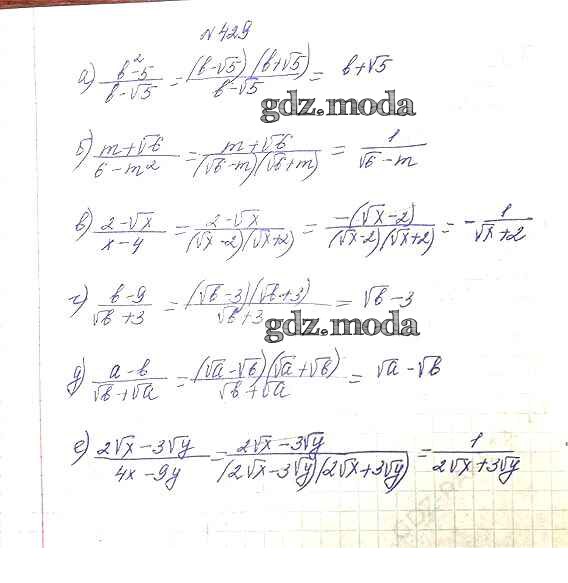 №429
а) (b²-5)/(b-√5) = ((b-√5)(b+√5))/(b-√5) = b+√5
gdz.moda
б) (m+√6)/(6-m²) = (m+√6)/((√6-m)(√6+m)) = 1/(√6-m)
в) (2-√x)/(x-4) = (2-√x)/((√x-2)(√x+2)) = (-(√x-2))/((√x-2)(√x+2)) = -1/(√x+2)
г) (b-9)/(√b+3) = ((√b-3)(√b+3))/(√b+3) = √b-3
gdz.moda
д) (a-b)/(√b+√a) = ((√a-√b)(√a+√b))/(√b+√a) = √a-√b
е) (2√x-3√y)/(4x-9y) = (2√x-3√y)/((2√x-3√y)(2√x+3√y)) = 1/(2√x+3√y)